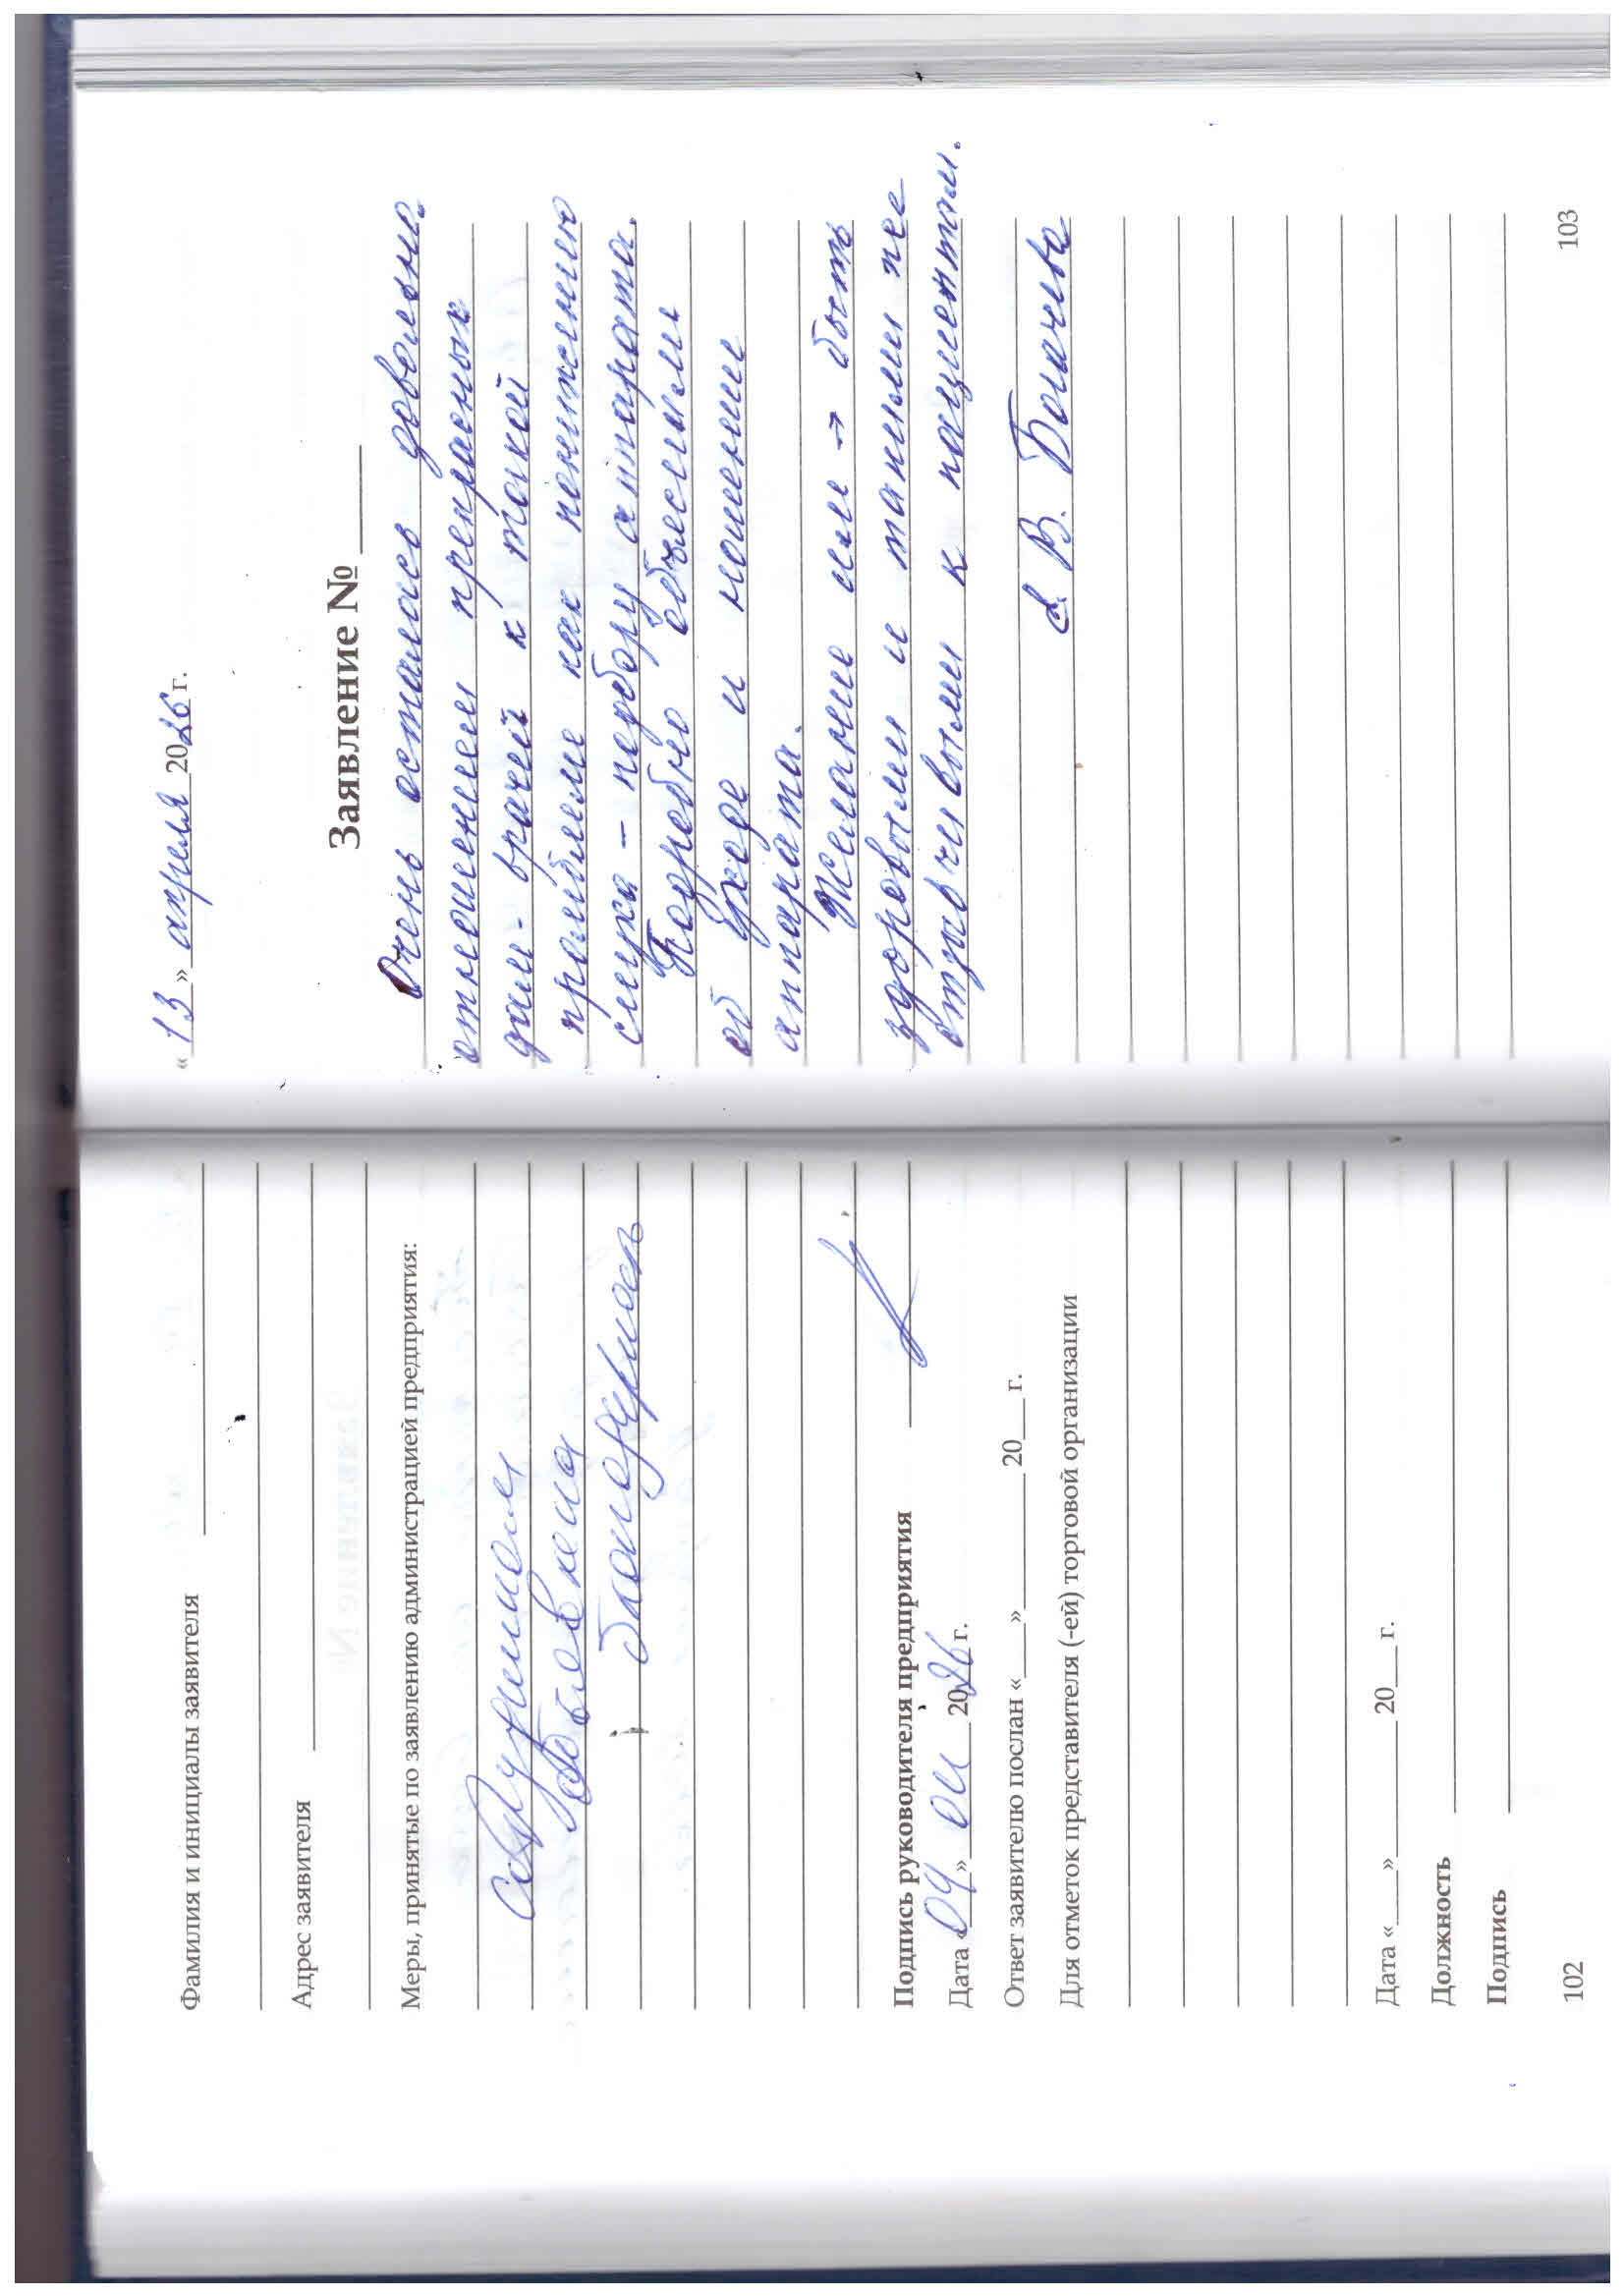 Фамилия и инициалы заявителя
Адрес заявителя
Меры, принятые по заявлению администрацией предприятия:
Сотрудникам
объявлена
благодарность
Подпись руководителя предприятия
Дата «04» 04 2026 г.
Ответ заявителю послан «___»________ 20___ г.
Для отметок представителя (-ей) торговой организации
Дата «___»________ 20___ г.
Должность
Подпись
102
«13» апреля 2026 г.
Заявление №
Очень осталась довольна
отношением прекрасных
дам- врачей к такой
проблеме как понижению
слуха - подбору аппарата.
Подробно объяснили
об уходе и ношении
аппарата.
Желание им → быть
здоровыми и такими же
отзывчивыми к пациентам.
В.
103